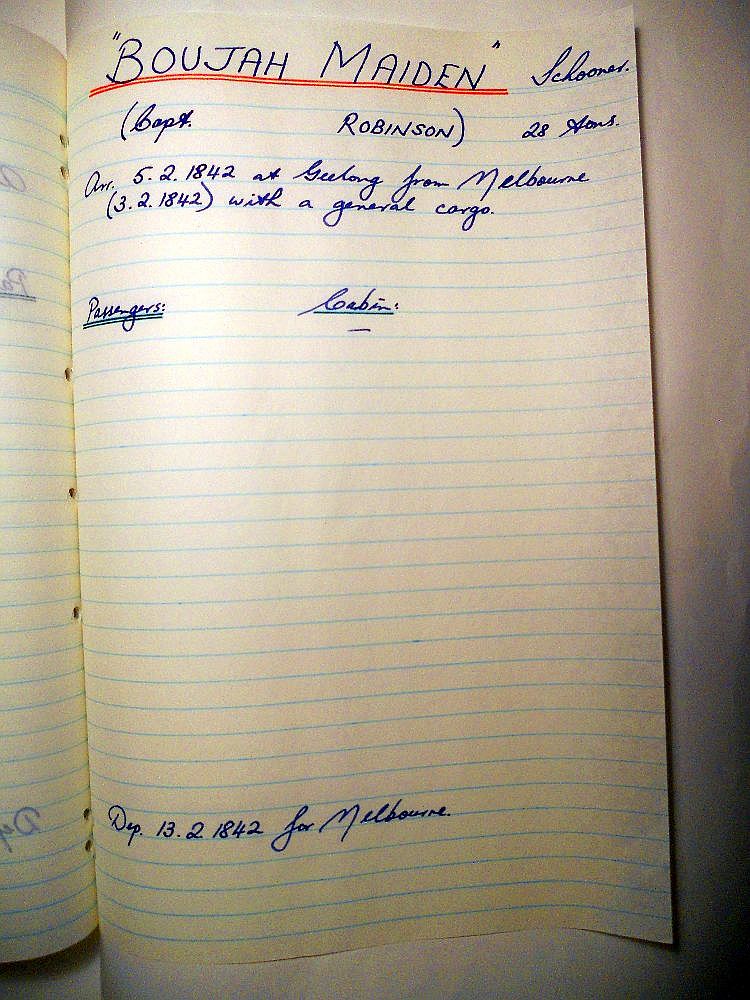 "BOUJAH MAIDEN" Schooner.
(Capt. ROBINSON) 28 tons.
Arr. 5.2.1842 at Geelong from Melbourne
(3.2.1842) with a general cargo.
Passengers: Cabin:
—
Dep. 13.2.1842 for Melbourne.